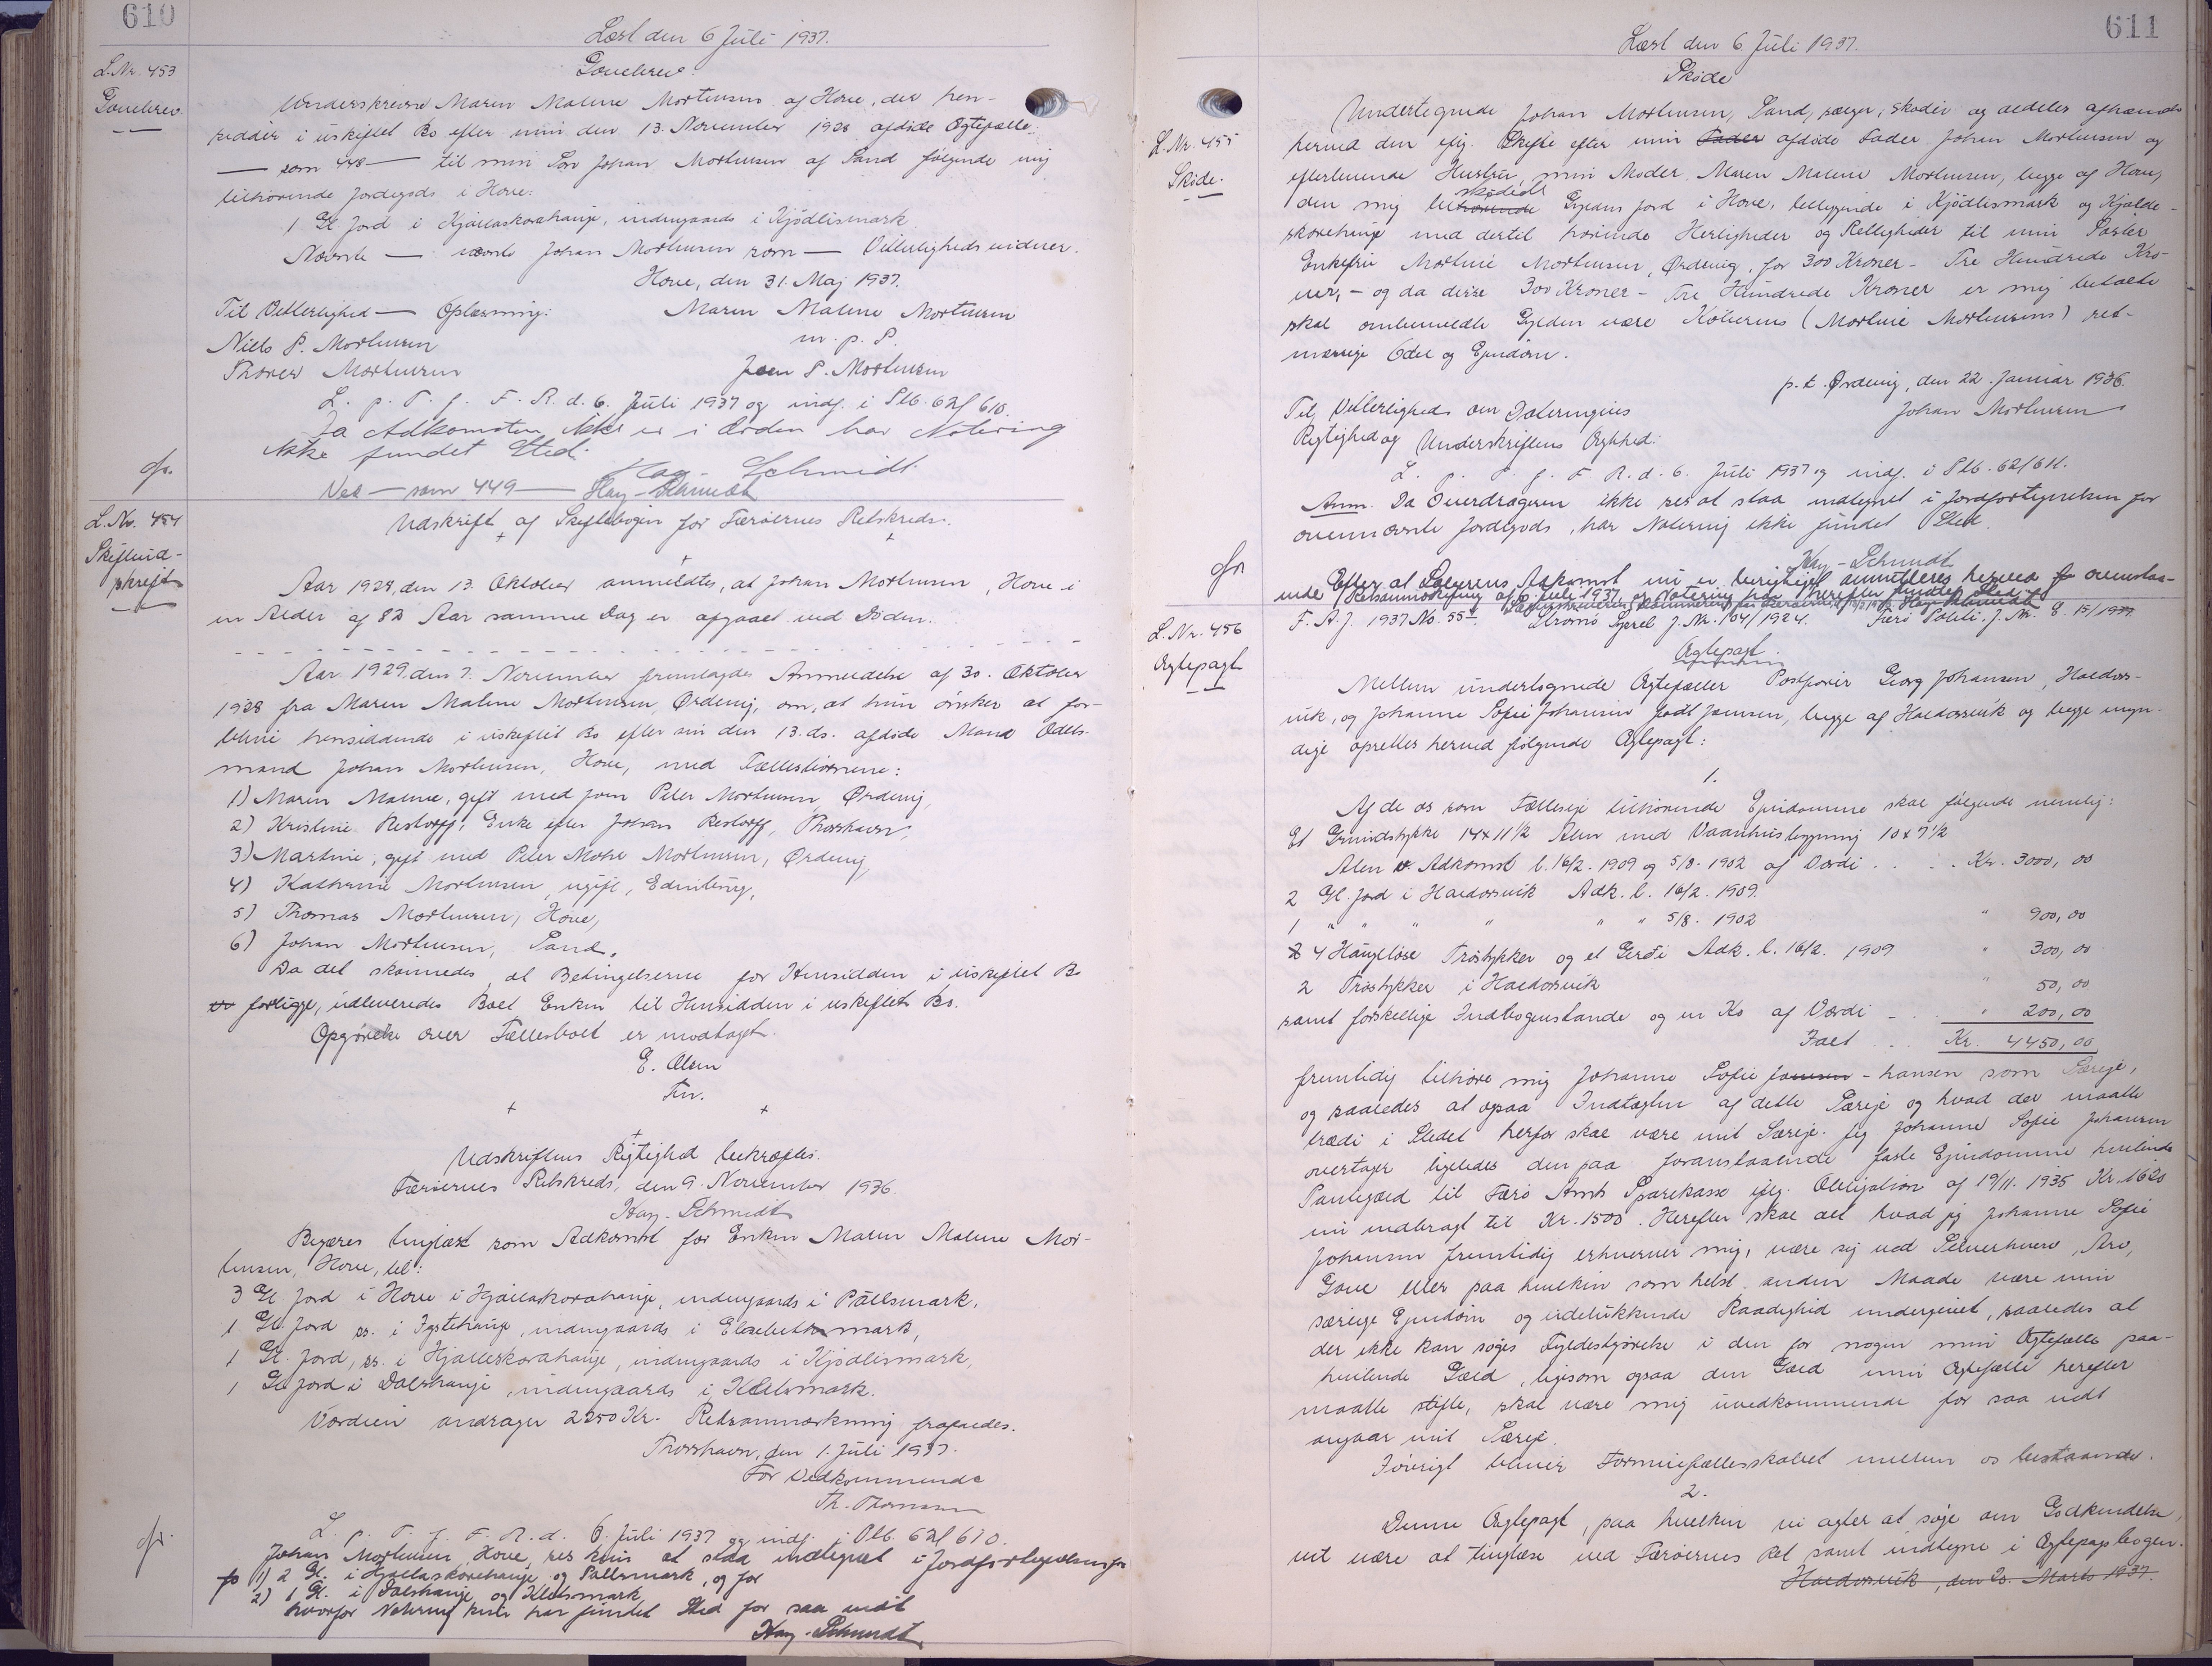 610
Læst den 6 Juli 1937.
L.Nr. 453
Gavebrev
Gavebrev.
Underskrevne Maren Malene Mortensen af Hove, der hen-
sidder i uskiftet Bo efter min den 13. November 1928 afdöde Ægtefælle
— som 448 — til min Sön Johan Mortensen af Sand fölgende mig
tilhörende Jordegods i Hove:
1 Gl. Jord i Kjallaskorahauge, indengaards i Kjödlismark
Nævnte — nævnte Johan Mortensen som — Vitterligheds vidner.
Hove, den 31. Maj 1937.
Til Vitterlighed — Oplæsning:
Maren Malene Mortensen
m. p. P.
Niels P. Mortensen
Thorver Mortensen
Joen P. Mortensen
L. p. T. f. F. R. d. 6. Juli 1937 og indf. i Plb. 62/610.
Da Adkomsten ikke er i Orden har Notering
ikke fundet Sted.
Hay-Schmidt
Ved — som 449 — Hay-Schmidt
L.Nr. 454
Skifteud-
skrift
Udskrift af Skiftebogen for Færöernes Retskreds.
Aar 1928, den 13. Oktober anmeldtes, at Johan Mortensen, Hove i
en Alder af 82 Aar samme Dag er afgaaet ved Döden.
Aar 1929 den 7. November fremlagdes Anmeldelse af 30. Oktober
1928 fra Maren Malene Mortensen, Ørdevig, om, at hun önsker at for-
blive hensiddende i uskiftet Bo efter sin den 13. ds. afdöde Mand Odels-
mand Johan Mortensen, Hove, med Fællesbörnene:
1) Maren Malene, gift med Joen Peter Mortensen, Ørdevig,
2) Kristine Restorff, Enke efter Johan Restorff, Thorshavn,
3) Martine, gift med Peter Mohr Mortensen, Ørdevig,
4) Kathrine Mortensen, ugift, Edinburg,
5) Thomas Mortensen, Hove,
6) Johan Mortensen, Sand.
Da det skönnedes, at Betingelserne for Hensidden i uskiftet Bo
er forligge, udleveredes Boet Enken til Hensidden i uskiftet Bo.
Opgörelse over Fællesboet er modtaget.
E. Olsen
Fm.
Udskriftens Rigtighed bekræftes.
Færöernes Retskreds, den 9. November 1936.
Hay-Schmidt
Begæres tinglæst som Adkomst for Enken Maren Malene Mor-
tensen, Hove, til:
3 Gl. Jord i Hove i Hjallaskorahauge, indengaards i Pallsmark,
1 Gl. Jord ss. i Fystehauge, indengaards i Elsebethmark,
1 Gl. Jord, ss. i Hjalleskorahauge, indengaards i Kjödlismark,
1 Gl. Jord i Dalshauge, indengaards i Kletsmark.
Værdien andrager 2250 Kr. Retsanmærkning frafaldes.
Thorshavn, den 1. Juli 1937.
For Vedkommende
Th. Thomsen
L. p. T. f. F. R. d. 6. Juli 1937 og indf. i Plb. 62/610.
Johan Mortensen, Hove, ses kun at staa indtegnet i Jordfortegnelsen for
1) 2 Gl. i Hjallaskorehauge og Pallsmark, og for
2) 1 Gl. i Dalshauge og Kletsmark
hvorfor Notering kun har fundet Sted for saa vidt
Hay-Schmidt
611
Læst den 6 Juli 1937.
L.Nr. 455
Sköde.
Sköde
Undertegnede Johan Mortensen, Sand, sælger, sköder og aldeles afhænder
herved den iflg. Skifte efter min Fader afdöde Fader Johan Mortensen og
efterlevende Hustru, min Moder Maren Malene Mortensen, begge af Hove,
sködede
den mig tilhörende Gylden Jord i Hove, beliggende i Kjödlismark og Kjalde-
skorehauge med dertil hörende Herligheder og Rettigheder til min Söster
Enkefru Martine Mortensen, Ørdevig, for 300 Kroner - Tre Hundrede Kro-
ner, - og da disse 300 Kroner - Tre Hundrede Kroner er mig betalte
skal ombemeldte Gylden være Köberens (Martine Mortensens) ret-
mæssige Odel og Ejendom.
p.t. Ørdevig, den 22. Januar 1936.
Til Vitterlighed om Dateringens
Johan Mortensen
Rigtighed og Underskriftens Ægthed:
L. p. T. f. F. R. d. 6. Juli 1937 og indf. i Plb. 62/611.
Anm. Da Overdrageren ikke ses at staa indtegnet i Jordfortegnelsen for
ovennævnte Jordegods, har Notering ikke fundet Sted.
Hay-Schmidt
Efter at Sælgerens Adkomst nu er berigtiget annulleres herved ovenstaa-
ende Retsanmærkning af 6. Juli 1937, og Notering har herefter fundet Sted.
L.Nr. 456
Ægtepagt
F. A. J. 1937 No. 554. Strömö Syssel J. Nr. 104/1924. Færö Politi. J. Nr. 8. 15/1937
Ægtepagt.
Mellem undertegnede Ægtefæller Postförer Georg Johansen, Haldors-
vik, og Johanne Sofie Johansen födt Jansen, begge af Haldorsvik og begge myn-
dige oprettes herved fölgende Ægtepagt:
1.
Af de os som Fælleseje tilhörende Ejendomme skal fölgende nemlig:
Et Grundstykke 14 x 11 1/2 Alen med Vaaningsbygning 10 x 7 1/2
Alen Adkomst l. 16/2. 1909 og 5/8. 1902 af Værdi . . . . Kr. 3000,00
2 Gl. Jord i Haldorsvik Adk. l. 16/2. 1909.
1 " " " " " " 5/8. 1902 " 900,00
4 Haugelöse Tröstykker og et Gerdi Adk. l. 16/2. 1909 " 300,00
2 Tröstykker i Haldorsvik " 50,00
samt forskellige Indbogenstande og en Ko af Værdi - . . " 200,00
Ialt . . . Kr. 4450,00
fremtidig tilhöre mig Johanne Sofie Jansen - hansen som Særeje,
og saaledes at ogsaa Indtægten af dette Særeje og hvad der maatte
træde i Stedet herfor skal være mit Særeje. Jeg Johanne Sofie Johansen
overtager ligeledes den paa foranstaaende faste Ejendomme hvilende
Pantegæld til Færö Amts Sparekasse iflg. Obligation af 19/11. 1935 Kr. 1620
nu nedbragt til Kr. 1500. Herefter skal alt hvad jeg Johanne Sofie
Johansen fremtidig erhverver mig, være sig ved Selverhverv, Arv,
Gave eller paa hvilken som helst anden Maade være min
særlige Ejendom og udelukkende Raadighed undergivet, saaledes at
der ikke kan söges Fyldestgörelse i den for nogen min Ægtefælle paa-
hvilende Gæld, ligesom ogsaa den Gæld min Ægtefælle herefter
maatte stifte, skal være mig uvedkommende for saa vidt
angaar mit Særeje.
Iövrigt bliver Formuefællesskabet mellem os bestaaende.
2.
Denne Ægtepagt, paa hvilken vi agter at söge om Godkendelse,
vil være at tinglæse ved Færöernes Ret samt indtegne i Ægtepagtbogen.
Haldorsvik, den 20. Marts 1937.